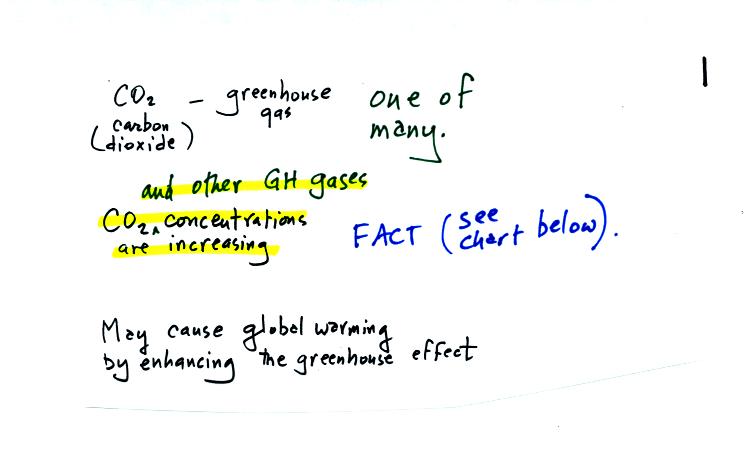 CO2 – greenhouse gas one of many.
(carbon dioxide)
and other GH gases
CO2 ^ concentrations
are increasing FACT (see chart below).
May cause global warming
by enhancing the greenhouse effect